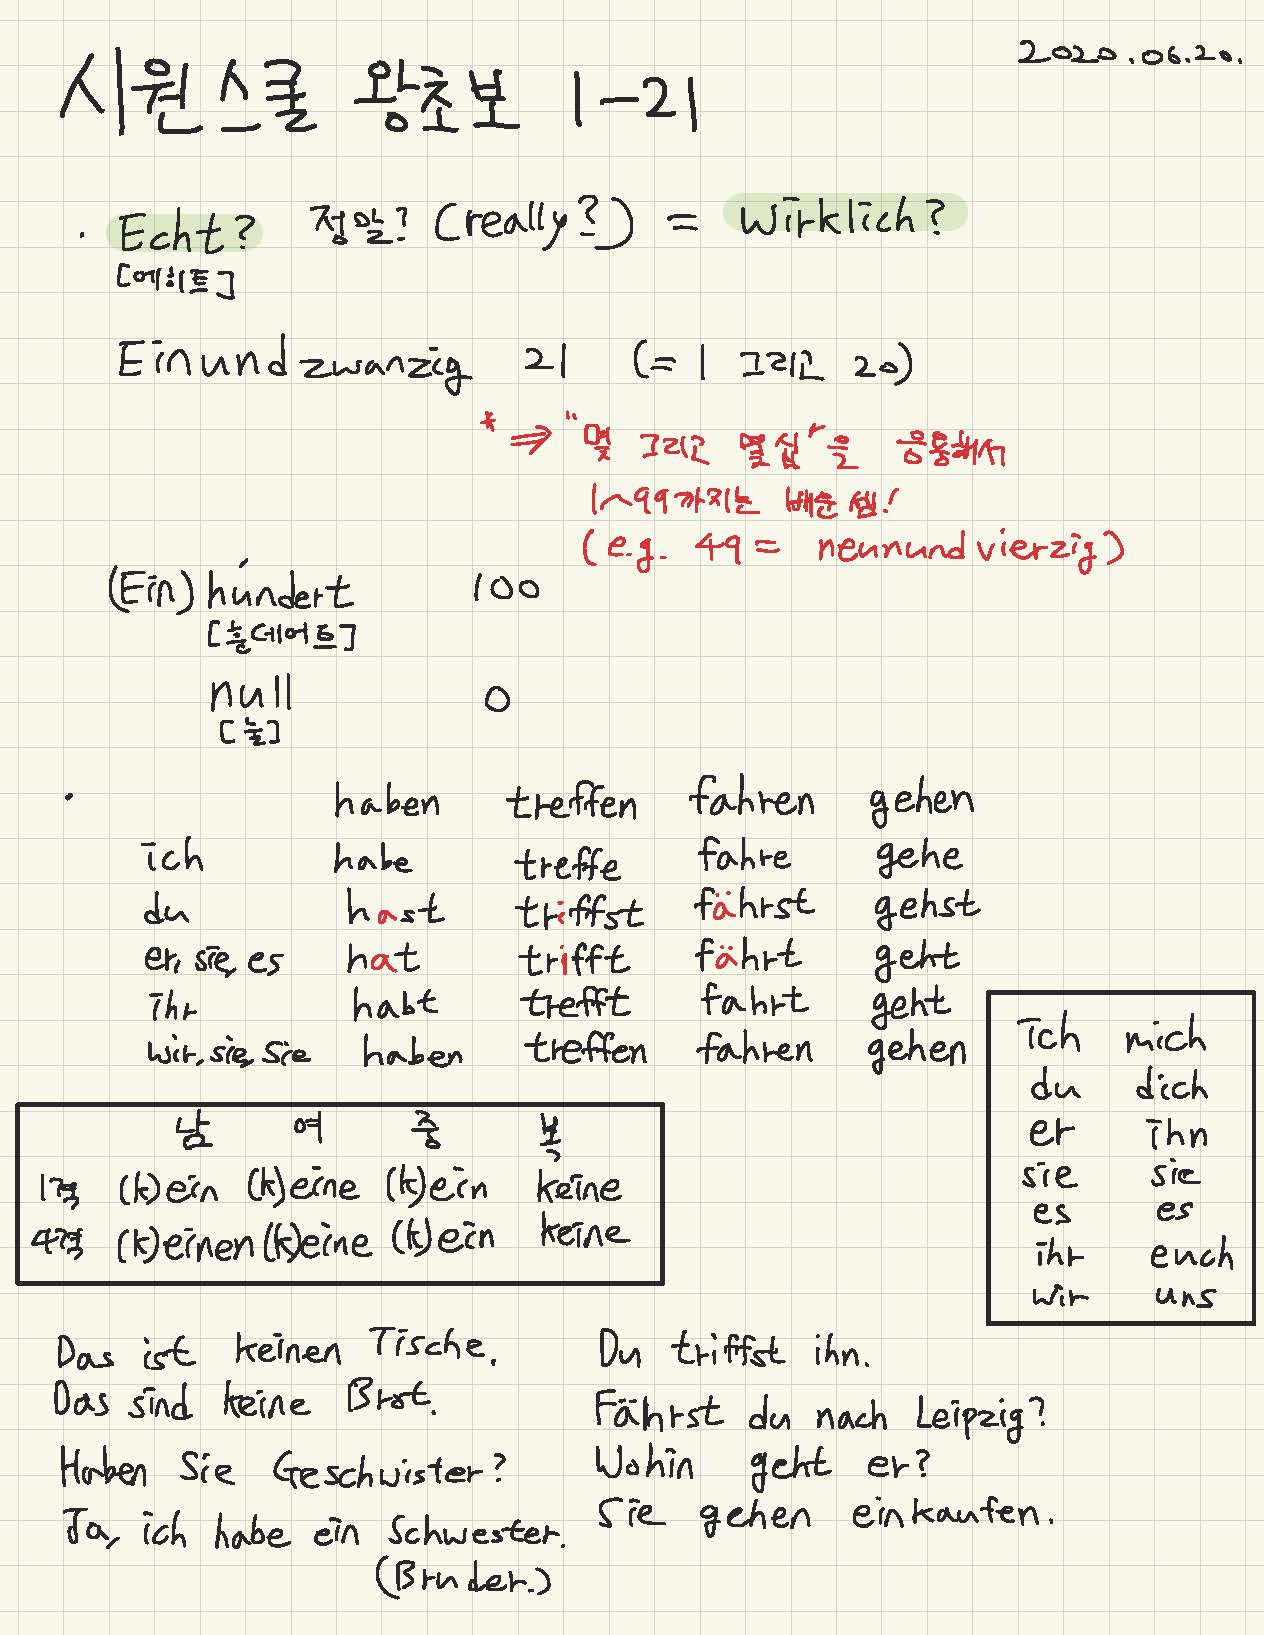 2020.06.20.
시원스쿨 왕초보 1-21
· Echt? 정말? (really?) = Wirklich?
[에히트]
Einundzwanzig 21 (= 1 그리고 20)
* ⇒ "몇 그리고 몇십"을 응용해서
1~99까지는 배운 셈!
(e.g. 49 = neunundvierzig)
(Ein) hundert 100
[훈데어트]
null 0
[눌]
· haben treffen fahren gehen
ich habe treffe fahre gehe
du hast triffst fährst gehst
er, sie, es hat trifft fährt geht
ihr habt trefft fahrt geht
wir, sie, Sie haben treffen fahren gehen
ich mich
du dich
er ihn
sie sie
es es
ihr euch
wir uns
남 여 중 복
1격 (k)ein (k)eine (k)ein keine
4격 (k)einen (k)eine (k)ein keine
Das ist keinen Tische.
Das sind keine Brot.
Haben Sie Geschwister?
Ja, ich habe ein Schwester.
(Bruder.)
Du triffst ihn.
Fährst du nach Leipzig?
Wohin geht er?
Sie gehen einkaufen.